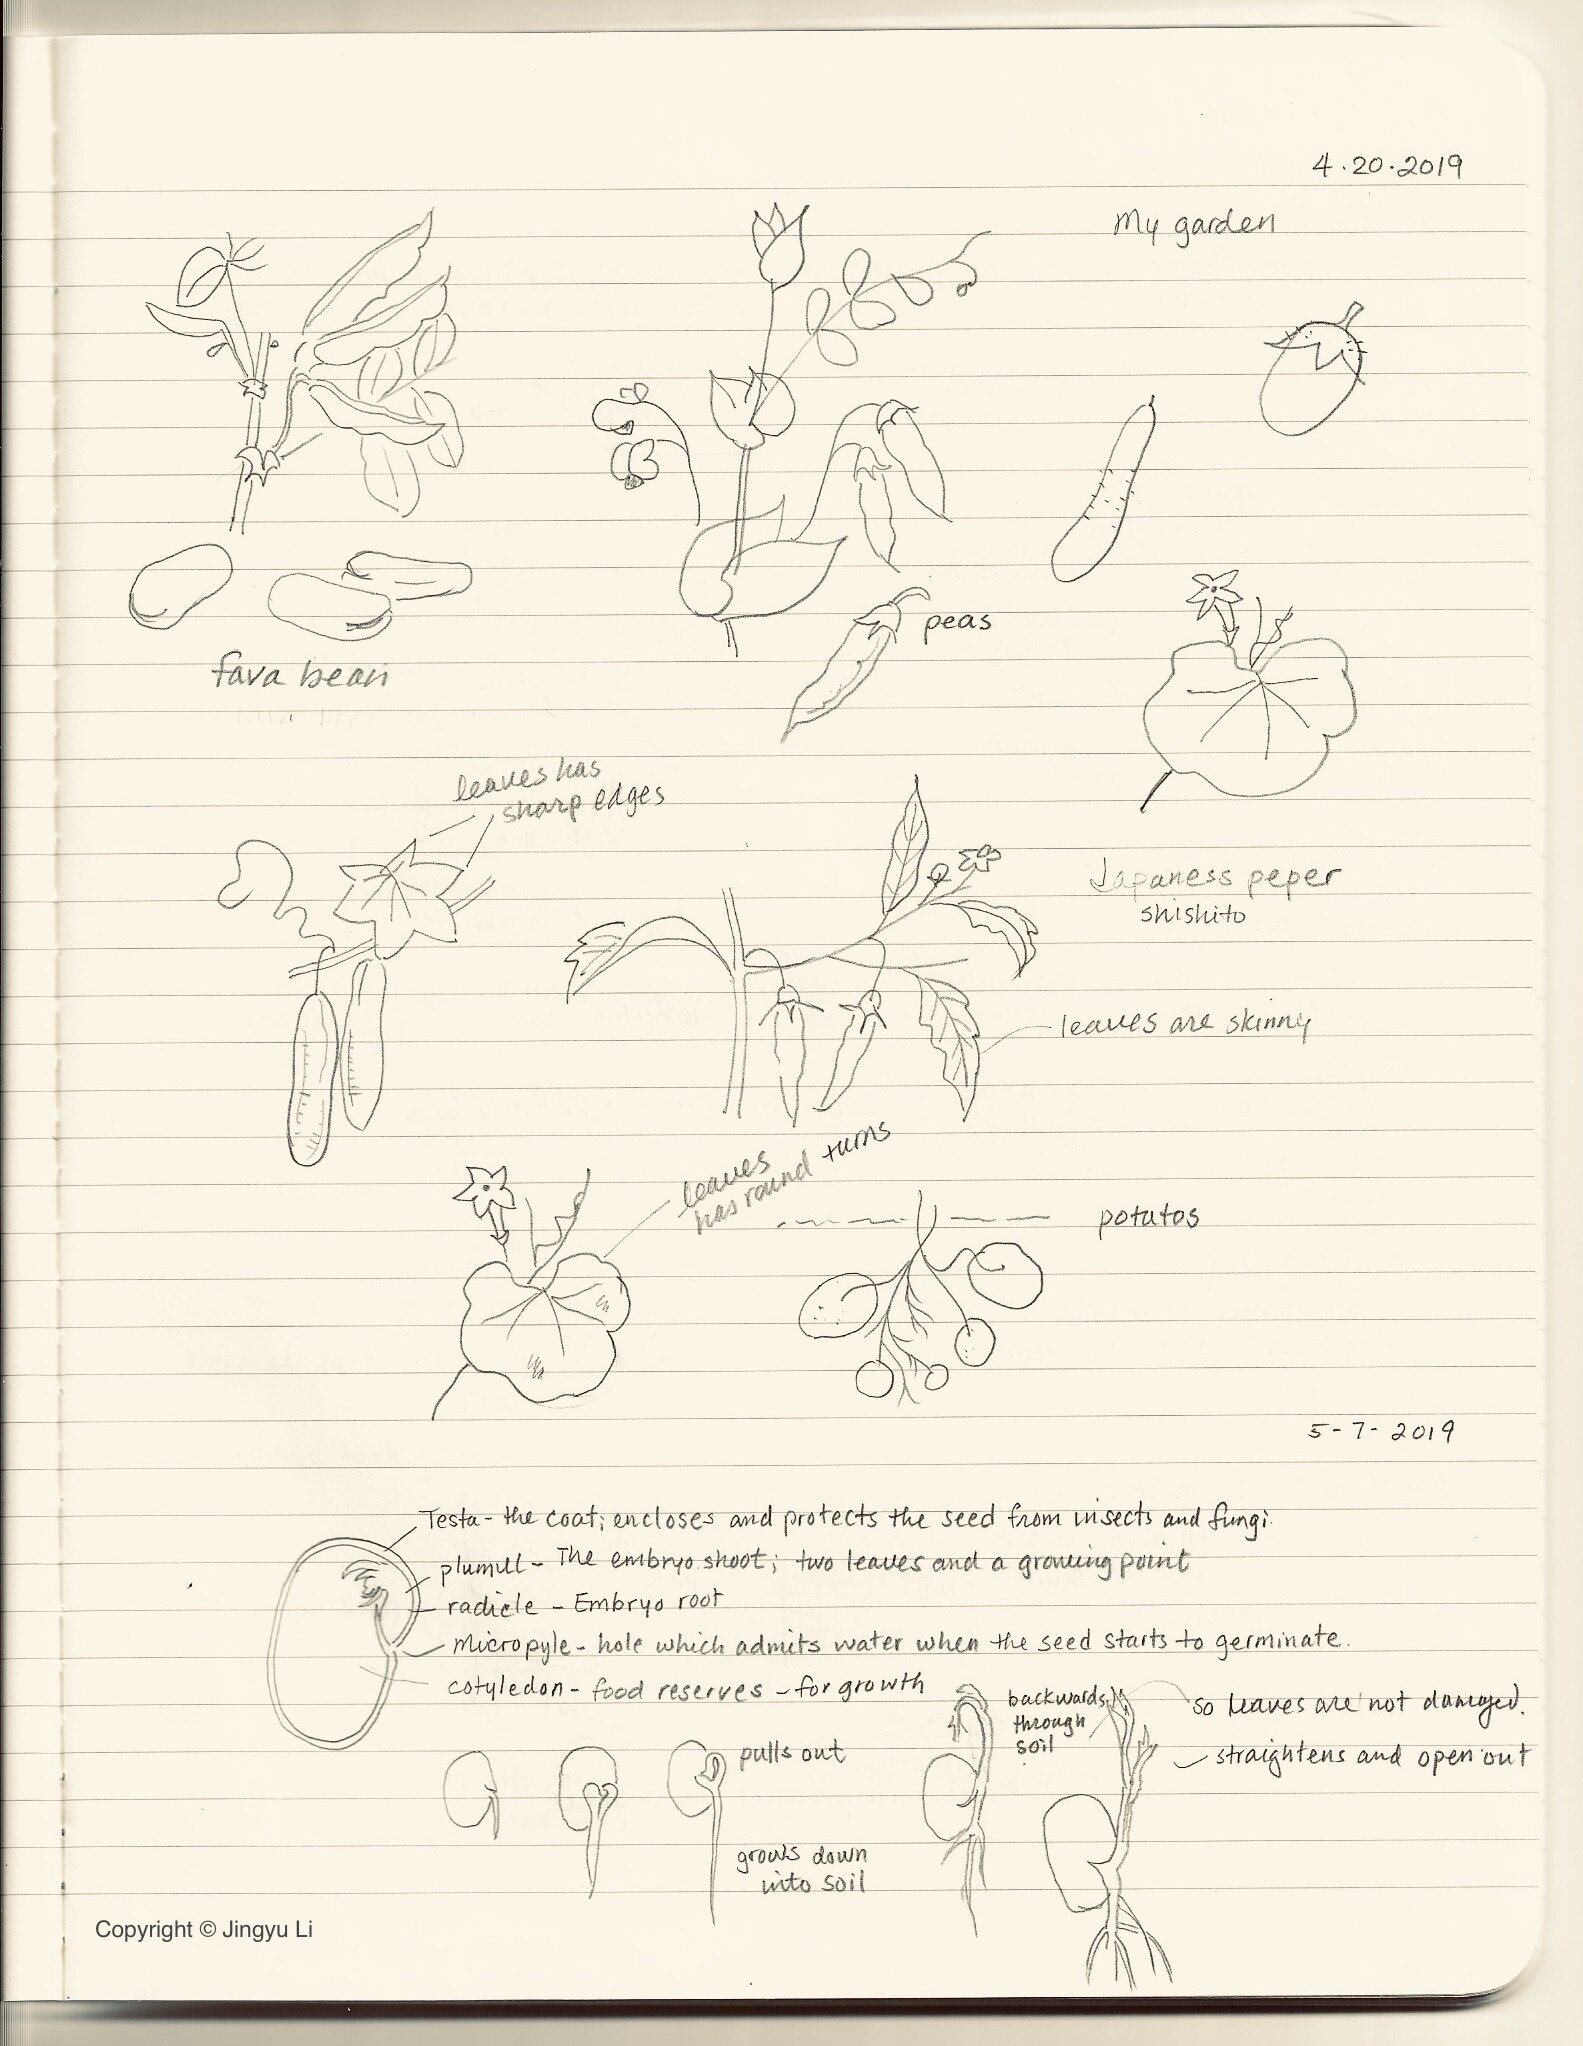 4.20.2019
My garden
peas
fava bean
leaves has
sharp edges
Japaness peper
shishito
leaves are skinny
leaves
has round turns
potatos
5-7-2019
Testa - the coat; encloses and protects the seed from insects and fungi.
plumull - The embryo shoot; two leaves and a growing point
radicle - Embryo root
Micropyle - hole which admits water when the seed starts to germinate.
cotyledon - food reserves - for growth
backwards
through
soil
so leaves are not damaged.
pulls out
straightens and open out
grows down
into soil
Copyright © Jingyu Li